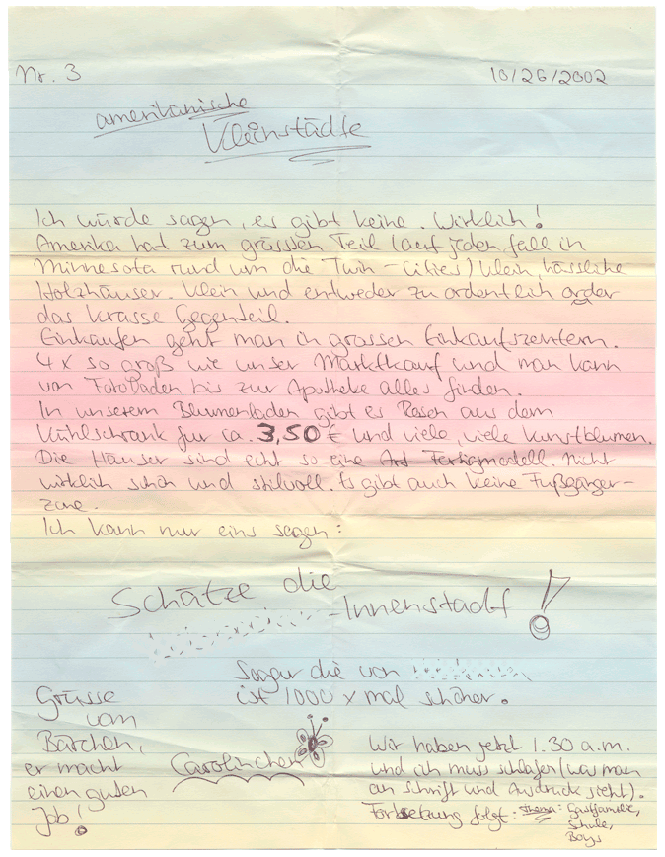 Nr. 3
10/26/2002
amerikanische
Kleinstädte
Ich würde sagen, es gibt keine. Wirklich!
Amerika hat zum grössten Teil (auf jeden fall in
Minnesota rund um die Twin-Cities) klein, hässliche
Holzhäuser. Klein und entweder zu ordentlich oder
das krasse Gegenteil.
Einkaufen geht man in grossen Einkaufszentern.
4 x so groß wie unser Marktkauf und man kann
von Fotoladen bis zur Apotheke alles finden.
In unserem Blumenladen gibt es Rosen aus dem
Kühlschrank für ca. 3,50 € und viele, viele Kunstblumen.
Die Häuser sind echt so eine Art Fertigmodell. Nicht
wirklich schön und stilvoll. Es gibt auch keine Fußgänger-
zone.
Ich kann nur eins sagen:
Schätze die
-Innenstadt!
Sogar die von
ist 1000 x mal schöner.
Grüsse
vom
Bärchen,
er macht
einen guten
Job!
Carolinchen
Wir haben jetzt 1.30 a.m.
und ich muss schlafen (was man
an Schrift und Ausdruck sieht).
Fortsetzung folgt: Thema: Gastfamilie,
Schule,
Boys